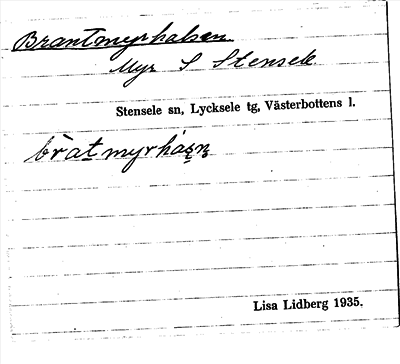 Brantmyrhalsen
Myr S Stensele
Stensele sn, Lycksele tg, Västerbottens l.
Lisa Lidberg 1935.